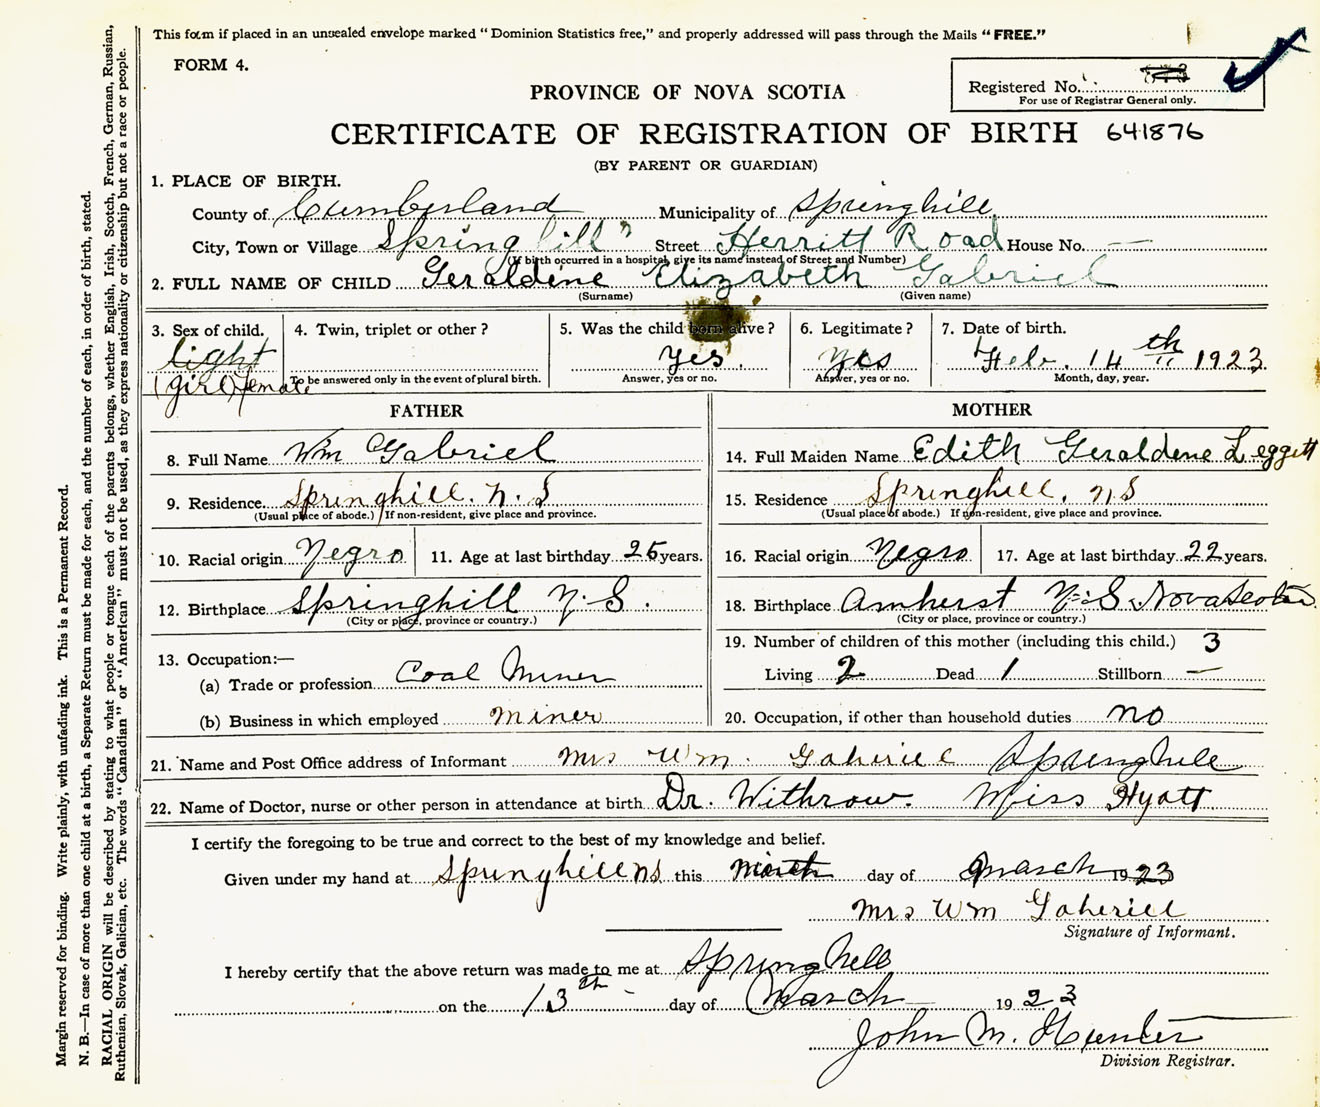 This form if placed in an unsealed envelope marked "Dominion Statistics free," and properly addressed will pass through the Mails "FREE."
FORM 4.
Registered No.
For use of Registrar General only.
PROVINCE OF NOVA SCOTIA
CERTIFICATE OF REGISTRATION OF BIRTH 641876
(BY PARENT OR GUARDIAN)
1. PLACE OF BIRTH.
County of Cumberland Municipality of Springhill
City, Town or Village Springhill Street Herritt Road House No. —
(If birth occurred in a hospital, give its name instead of Street and Number)
2. FULL NAME OF CHILD Geraldine Elizabeth Gabriel
(Surname) (Given name)
3. Sex of child. 4. Twin, triplet or other? 5. Was the child born alive? 6. Legitimate? 7. Date of birth.
yes. yes Feb. 14th 1923
(girl) female To be answered only in the event of plural birth. Answer, yes or no. Answer, yes or no. Month, day, year.
FATHER
8. Full Name Wm Gabriel
9. Residence Springhill. N.S
(Usual place of abode.) If non-resident, give place and province.
10. Racial origin Negro 11. Age at last birthday 25 years.
12. Birthplace Springhill N.S.
(City or place, province or country.)
13. Occupation:—
(a) Trade or profession Coal Miner
(b) Business in which employed miner
MOTHER
14. Full Maiden Name Edith Geraldene Leggett
15. Residence Springhill, N.S
(Usual place of abode.) If non-resident, give place and province.
16. Racial origin Negro 17. Age at last birthday 22 years.
18. Birthplace Amherst N.S. Nova Scotia
(City or place, province or country.)
19. Number of children of this mother (including this child.) 3
Living 2 Dead 1 Stillborn —
20. Occupation, if other than household duties no
21. Name and Post Office address of Informant Mrs Wm. Gaberiel Springhill
22. Name of Doctor, nurse or other person in attendance at birth Dr. Withrow. Miss Hyatt
I certify the foregoing to be true and correct to the best of my knowledge and belief.
Given under my hand at Springhill NS this day of March 1923
Mrs Wm Gaberiel
Signature of Informant.
I hereby certify that the above return was made to me at Springhill
on the 13th day of March 1923
John M. Hunter
Division Registrar.
Margin reserved for binding. Write plainly, with unfading ink. This is a Permanent Record.
N. B.—In case of more than one child at a birth, a Separate Return must be made for each, and the number of each, in order of birth, stated.
RACIAL ORIGIN will be described by stating to what people or tongue each of the parents belongs, whether English, Irish, Scotch, French, German, Russian,
Ruthenian, Slovak, Galician, etc. The words "Canadian" or "American" must not be used, as they express nationality or citizenship but not a race or people.